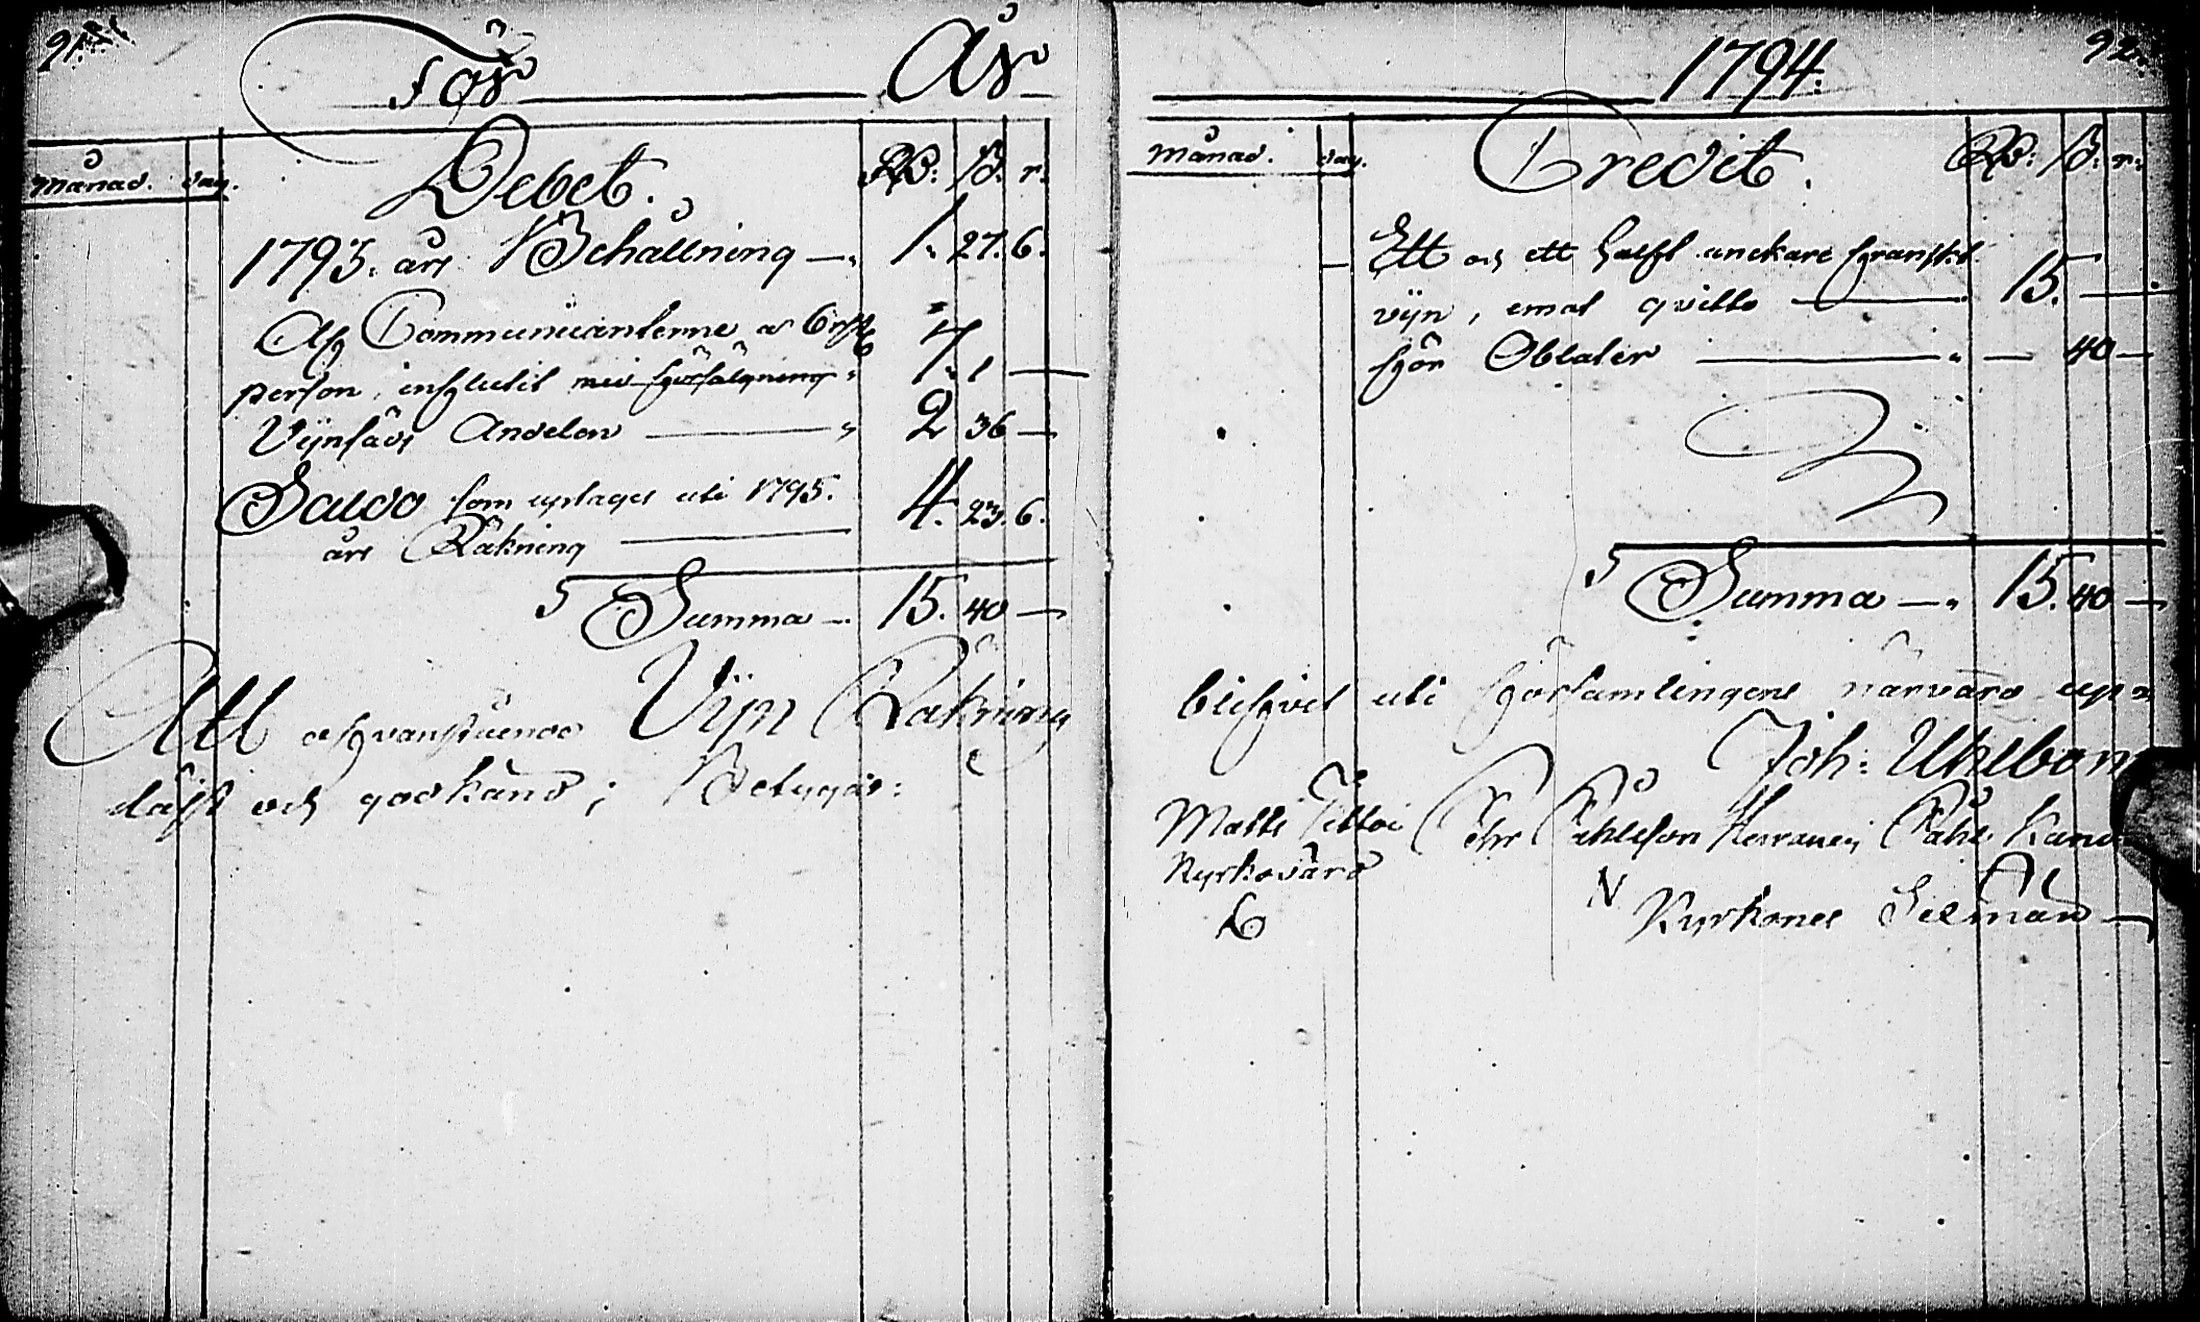 91.
För År
Månad. dag. Debet. RD: ß: r:
1793. års Behållning —. 1. 27. 6.
Af Communicanterne a 6 rst
person, influtit med försälgning. 7. 1 —
Vijnsäds Andelen — 2 36 —
Saldo som uptages uti 1795. 4. 23. 6.
års Räkning —
Summa —. 15. 40 —
Att ofvanstående Vijn Räkning
läst och godkänd; Betygar:
1794. 92.
Månad. dag. Credit. RD: ß: r:
Ett och ett halft anckare franskt
vijn, emot qvitto — 15. —
för Oblater — 40 —
Summa —. 15. 40 —
blifvit uti församlingens närvaro up-
Joh: Uhlbom
Matts Kyrkovärd
Påhlsson Påhl
Kyrkones Sexman